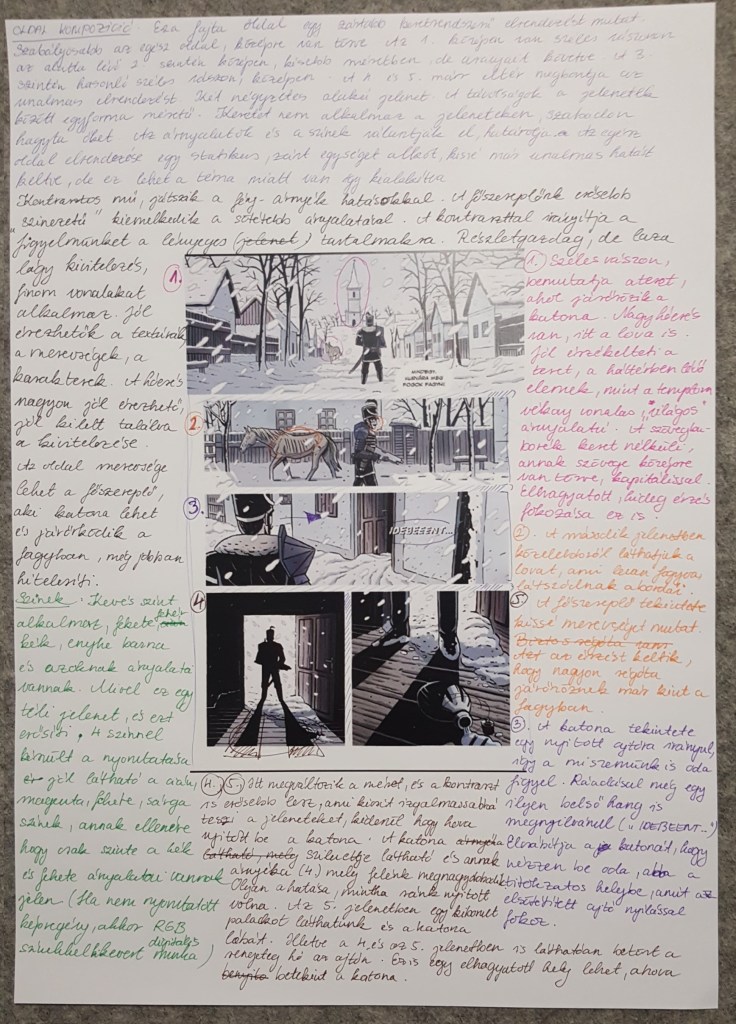 OLDAL KOMPOZICIÓ. Ez a fajta oldal egy zártabb keretrendszerű elrendezést mutat.
Szabályosabb az egész oldal, középre van törve. Az 1. középen van széles vásznon
az alatta lévő 2. szintén középen, kisebb méretben, de arányait követve. A 3.
szintén hasonló széles vászon, középen. A 4. és 5. már eltér megbontja az
unalmas elrendezést. Két négyzetes alakú jelenet. A távolságok a jelenetek
között egyforma méretű. Keretet nem alkalmaz a jeleneteken, szabadon
hagyta őket. Az árnyalatok és a színek választják el, határolja. Az egész
oldal elrendezése egy statikus, zárt egységet alkot, kissé már unalmas hatást
keltve, de ez lehet a téma miatt van így kialakítva
Kontrasztos mű, játszik a fény-árnyék hatásokkal. A főszereplőnk erősebb
"színezetű" kiemelkedik a sötétebb árnyalatával. A kontraszttal irányítja a
figyelmünket a lényeges (jelenet) tartalmakra. Részletgazdag, de laza
lágy kivitelezés,
finom vonalakat
alkalmaz. Jól
érezhetők a textúrák,
a merevségek, a
karakterek. A hóesés
nagyon jól érezhető,
jól ki lett találva
a kivitelezése.
Az oldal merevsége
lehet a főszereplő,
aki katona lehet
és járőrködik a
fagyban, még jobban
hitelesíti.
Színek. Kevés színt
alkalmaz, fekete, fehér
kék, enyhe barna
és azoknak árnyalatai
vannak. Mivel ez egy
téli jelenet, és ezt
erősíti. 4 színnel
készült a nyomtatása
jól látható a cián,
magenta, fekete, sárga
színek, annak ellenére
hogy csak szinte a kék
és fekete árnyalatai vannak
jelen (Ha nem nyomtatott
képregény, akkor RGB
színekkel kikevert digitális munka)
1.
MINDJÁRT
HALÁLRA MEG
FOGOK FAGYNI
2.
3.
IDEBEEENT...
4
5
1. Széles vászon,
bemutatja a teret,
ahol járőrözik a
katona. Nagy hóesés
van, itt a lova is.
Jól érzékelteti a
teret, a háttérben lévő
elemek, mint a templom,
vékony vonalas, "világos"
árnyalatú. A szövegbu-
borék keret nélküli,
annak szövege középre
van törve, kapitálissal.
Elhagyatott, hideg érzés
fokozása ez is.
2. A második jelenetben
közelebbről láthatjuk a
lovat, ami lehet fagyva,
látszódnak a bordái.
A főszereplő tekintete
kissé merevséget mutat.
az érzést keltik,
hogy nagyon régóta
járőröznek már kint a
fagyban.
3. A katona tekintete
egy nyitott ajtóra irányul,
így a mi szemünk is oda
figyel. Ráadásul még egy
ilyen belső hang is
megnyilvánul ("IDEBEENT...")
Elcsábítja a katonát, hogy
nézzen be oda, abba a
titokzatos helybe, amit az
elsötétített ajtó nyílással
fokoz.
4. 5. Itt megváltozik a méret, és a kontraszt
is erősebb lesz, ami kicsit izgalmasabbá
teszi a jeleneteket, kiderül hogy hova
nyitott be a katona. A katona
sziluettje látható és annak
árnyéka (4) mely felénk megnagyobbodik
Olyan a hatása, mintha ránk nyitott
volna. Az 5. jelenetben egy kiborult
palackot láthatunk és a katona
lábát. Illetve a 4. és az 5. jelenetben is láthatóan betört a
rengeteg hó az ajtón. Ez is egy elhagyatott hely lehet, ahova
betekint a katona.